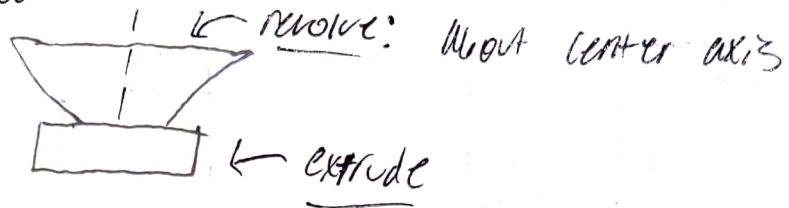 revolve: About center axis
extrude